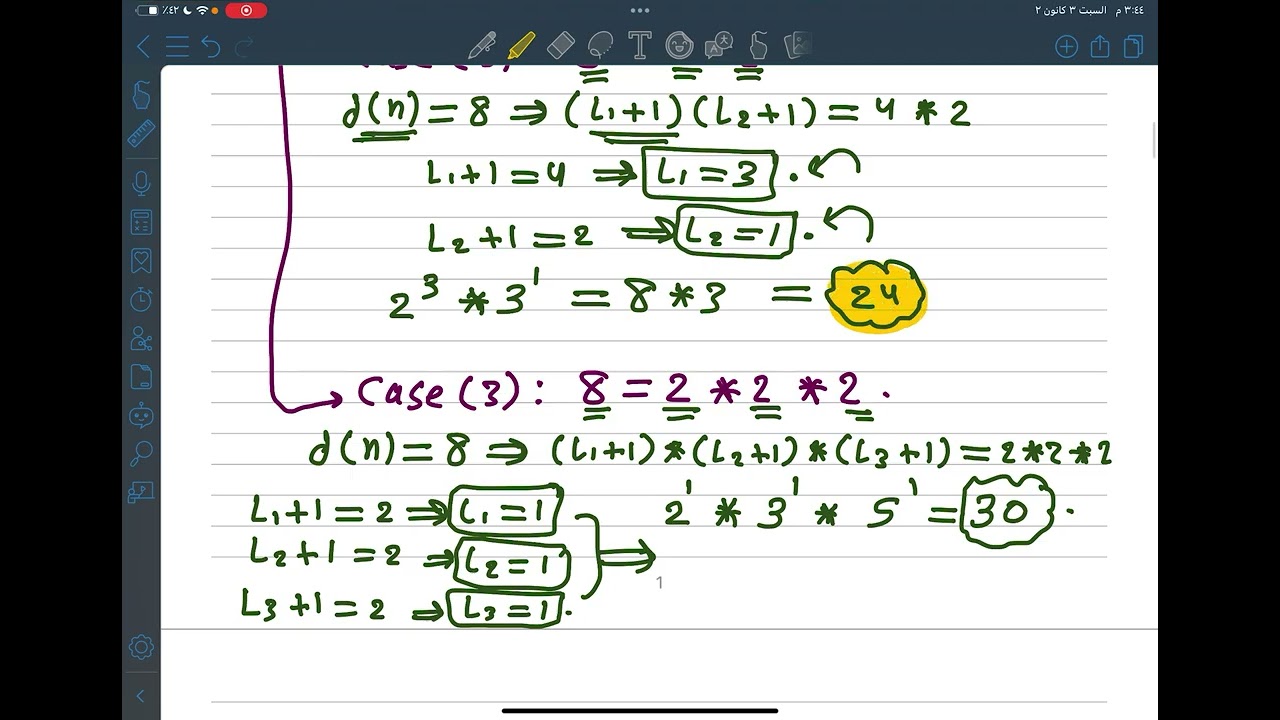 ٣:٤٤ م السبت ٣ كانون ٢
٪٤٢
d(n) = 8 ⇒ (L₁+1)(L₂+1) = 4 * 2
L₁+1 = 4 ⇒ L₁ = 3 .
L₂+1 = 2 ⇒ L₂ = 1 .
2³ * 3¹ = 8 * 3 = 24
→ Case (3) : 8 = 2 * 2 * 2 .
d(n) = 8 ⇒ (L₁+1)*(L₂+1)*(L₃+1) = 2*2*2
L₁+1 = 2 ⇒ L₁ = 1
L₂+1 = 2 ⇒ L₂ = 1
L₃+1 = 2 ⇒ L₃ = 1 .
⇒ 2¹ * 3¹ * 5¹ = 30 .
1